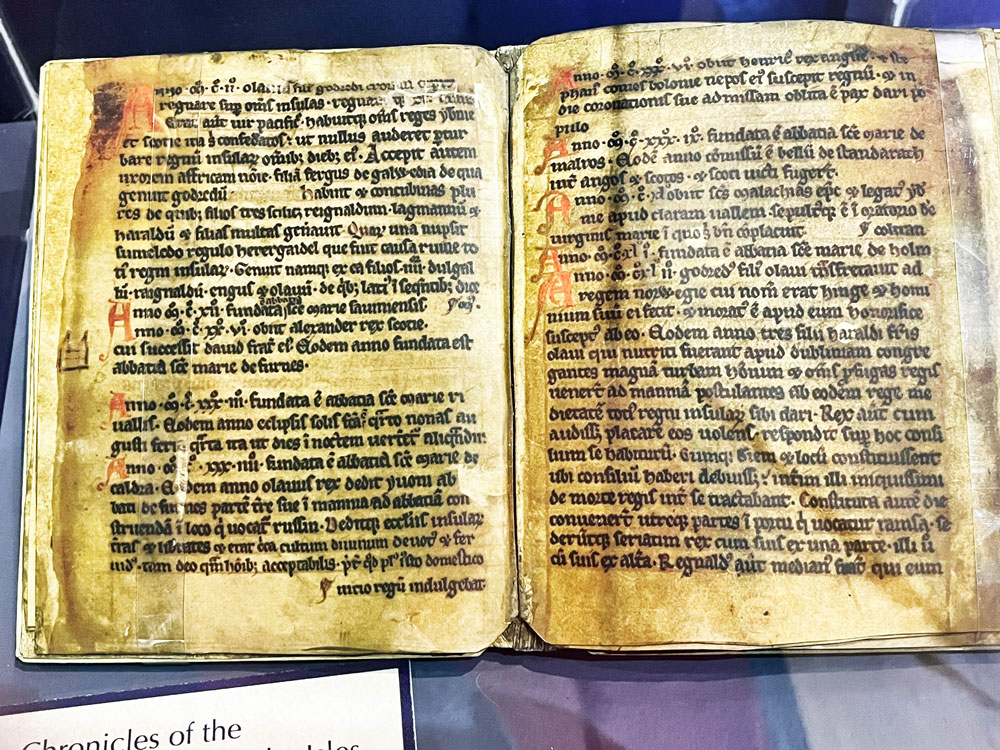 Anno · M̊ · C̊ · ii̊ · olauus filius godredi crouan cepit
regnare sup oms insulas · regnauit
Erat aut̄ uir pacific̓ · habuitq; om̄s reges ybernie
et scotie ita s̓ confederatos · ut nullus auderet ꝑtur
bare regnū insularꝝ omib; dieb; ei̓ · Accepit autem
uxorem affricam noīe · filiā fergus de galwedia de qua
genuit godredū habuit ⁊ concubinas plu
res de quib; filios tres scilic; reignaldum · lagmannū ⁊
haraldū ⁊ filias multas genauit · Quarꝝ una nupsit
sumeledo regulo herergaidel que fuit causa ruine to
ti̓ regni insularꝝ · Genuit namq; ex ea filios · iiii · dulgal
lū · raignaldū · engus ⁊ olauū · de q̄b; lati̓ ī seq̄ntib; dice
Anno · M̊ · C̊ · xii · fundata abbatia sc̄e marie sauiniensis · m̓
Anno · M̊ · C̊ · xx̊ · vi̊ · obiit alexander rex scotie ·
cui successit dauid frat̓ ei̓ · Eodem anno fundata est
abbatia sc̄e marie de furnes ·
Anno · M̊ · C̊ · xxx̊ · iii · fundata ē abbatia sc̄e marie ri
uallis · Eodem anno eclipsis solis fc̄a ē · q̄rto nonas au
gusti feria q̄rta ita ut dies ī noctem uerteret̓
Anno · M̊ · C̊ · xxx · iiii · fundata ē abbatia sc̄e marie de
caldra · Eodem anno olauus rex dedit yuoni ab
bati de furnes partē t̄re sue ī mannia ad abbatiā con
struendā ī loco q̓ uocat̓ russin · Deditq; ecclīis insularꝝ
t̄ras ⁊ libtates ⁊ erat c̓ca cultum diuinum deuot̓ ⁊ fer
uid̓ · tam deo q̄m hōib; acceptabilis · p̄t̓ qd̓ pl̓ isto domestico
uitio regū indulgebat ·
Anno · M̊ · C̊ · xxx̊ · vi̊ · obiit henric̓ rex anglie · ⁊ ste
phan̓ comes bolonie nepos ei̓ suscepit regnū · ⁊ in
die coronationis sue ad missam oblita ē pax dari po
pulo
Anno · M̊ · C̊ · xxx · ix̊ · fundata ē abbatia sc̄e marie de
malros · Eodē anno cōmissū ē bellū de standarath
int̓ anglos ⁊ scotos · ⁊ scoti uicti fugerūt
Anno · M̊ · C̊ · xl̊ obiit sc̄s malachias ep̄c ⁊ legat̓ yb̓
nie apud claram uallem · sepult̓q; ē ī oratorio be
uirginis marie ī quo s̓ bn̄ cōplacuit · colman ·
Anno · M̊ · C̊ · xl̊ i̊ · fundata ē abbatia sc̄e marie de holm
Anno · M̊ · C̊ · xl̊ ii̊ · godred̓ fili̓ olaui t̄nsfretauit ad
regem norwegie cui nom̄ erat hinge ⁊ homi
nium suū ei fecit · ⁊ morat̓ ē apud eum honorifice
suscept̓ ab eo · Eodem anno tres filii haraldi fr̄is
olaui qui nutriti fuerant apud dubliniam congre
gantes magnā turbam hōminum ⁊ om̄s ꝓfugas regis
uenerūt ad manniā postulantes ab eodē rege me
dietatē toti̓ regni insularꝝ sibi dari · Rex aut̄ cum
audiss; placare eos uolens · respondit sup hoc consi
lium se habiturū · Cumq; diem ⁊ locū constituissent
ubi consiliū haberi debuiss; · int̓im illi iniquissimi
de morte regis int̓ se tractabant · Constituta autē die
conuenerūt utreq; partes ī portu q̓ uocatur ramsa · se
derūtq; seriatim rex cum suis ex una parte · illi u̓
cū suis ex altā · Regnald̓ aut̄ median̓ frat̓ qui eum
Chronicles of the